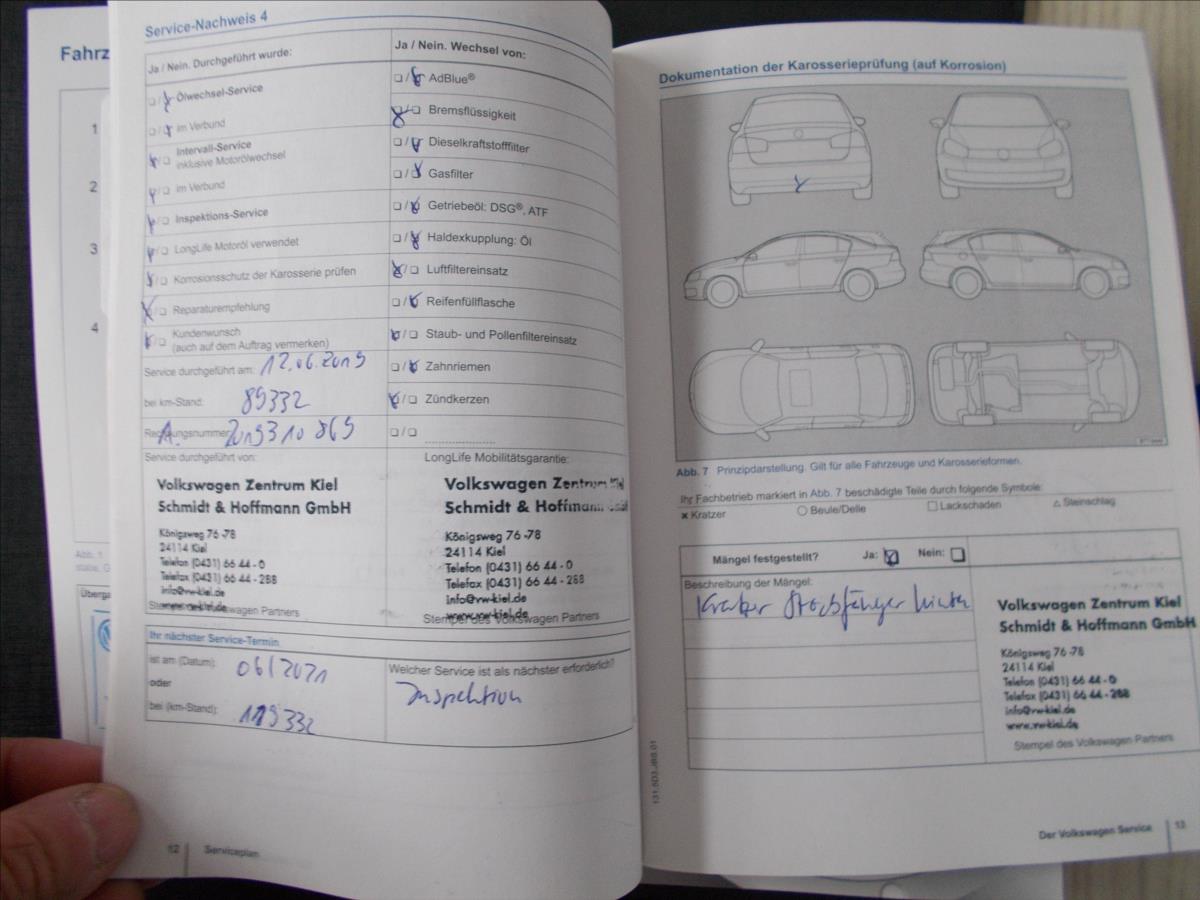 Fahrz
1
2
3
4
Abb. 1
Überga
Service-Nachweis 4
Ja / Nein. Durchgeführt wurde:
Ölwechsel-Service
im Verbund
Intervall-Service
inklusive Motorölwechsel
im Verbund
Inspektions-Service
LongLife Motoröl verwendet
Korrosionsschutz der Karosserie prüfen
Reparaturempfehlung
Kundenwunsch
(auch auf dem Auftrag vermerken)
Service durchgeführt am: 12.06.2019
bei km-Stand: 89332
Rechnungsnummer
Service durchgeführt von:
Volkswagen Zentrum Kiel
Schmidt & Hoffmann GmbH
Königsweg 76-78
24114 Kiel
Telefon (0431) 66 44-0
Telefax (0431) 66 44-288
info@vw-kiel.de
www.vw-kiel.de
Stempel des Volkswagen Partners
Ja / Nein. Wechsel von:
AdBlue®
Bremsflüssigkeit
Dieselkraftstofffilter
Gasfilter
Getriebeöl: DSG®, ATF
Haldexkupplung: Öl
Luftfiltereinsatz
Reifenfüllflasche
Staub- und Pollenfiltereinsatz
Zahnriemen
Zündkerzen
LongLife Mobilitätsgarantie:
Volkswagen Zentrum Kiel
Schmidt & Hoffmann GmbH
Königsweg 76-78
24114 Kiel
Telefon (0431) 66 44-0
Telefax (0431) 66 44-288
info@vw-kiel.de
www.vw-kiel.de
Stempel des Volkswagen Partners
Ihr nächster Service-Termin
ist am (Datum): 06/2021
oder
bei (km-Stand): 119332
Welcher Service ist als nächster erforderlich?
Inspektion
12 Serviceplan
Dokumentation der Karosserieprüfung (auf Korrosion)
Abb. 7 Prinzipdarstellung. Gilt für alle Fahrzeuge und Karosserieformen.
Ihr Fachbetrieb markiert in Abb. 7 beschädigte Teile durch folgende Symbole:
× Kratzer ○ Beule/Delle □ Lackschaden △ Steinschlag
Mängel festgestellt? Ja: Nein:
Beschreibung der Mängel:
Kratzer Stoßfänger hinten
Volkswagen Zentrum Kiel
Schmidt & Hoffmann GmbH
Königsweg 76-78
24114 Kiel
Telefon (0431) 66 44-0
Telefax (0431) 66 44-288
info@vw-kiel.de
www.vw-kiel.de
Stempel des Volkswagen Partners
Der Volkswagen Service 13